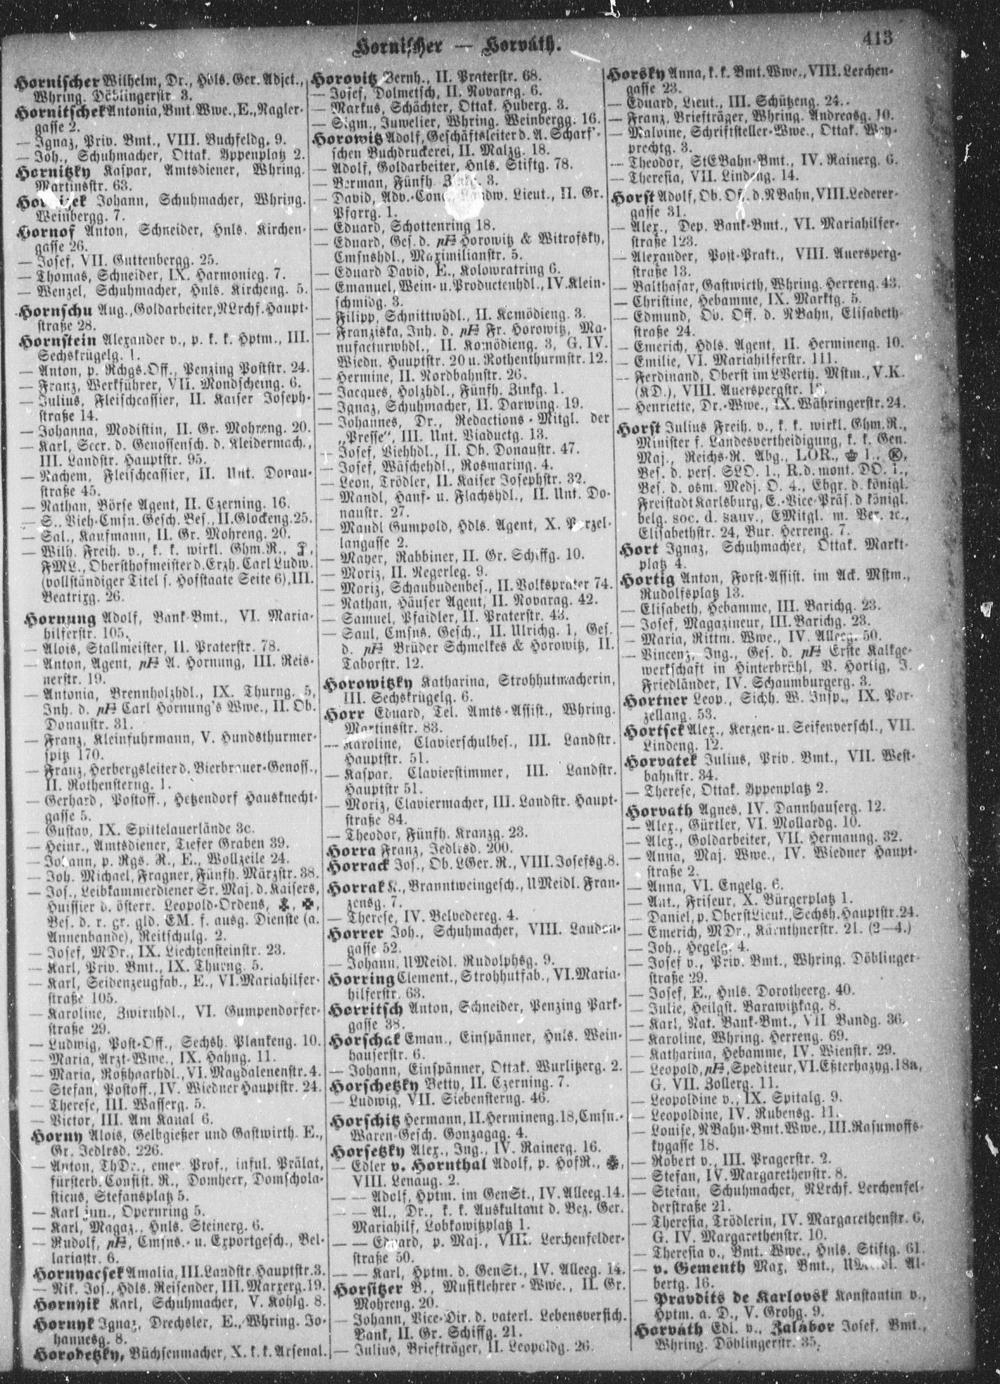 Hornischer — Horváth.
413
Hornischer Wilhelm, Dr., Hdls. Ger. Adjct.,
Whring. Döblingerstr. 3.
Hornitschek Antonia, Bmt. Wwe., E., Nagler-
gasse 2.
— Ignaz, Priv. Bmt., VIII. Buchfeldg. 9.
— Joh., Schuhmacher, Ottak. Eppenplatz 2.
Hornitzky Kaspar, Amtsdiener, Whring.
Martinsstr. 63.
Johann, Schuhmacher, Whring.
Weinbergg. 7.
Hornof Anton, Schneider, Hnls. Kirchen-
gasse 26.
— Josef, VII. Guttenbergg. 25.
— Thomas, Schneider, IX. Harmonieg. 7.
— Wenzel, Schuhmacher, Hnls. Kircheng. 5.
Hornschu Aug., Goldarbeiter, NLrchf. Haupt-
straße 28.
Hornstein Alexander v., p. k. k. Hptm., III.
Sechskrügelg. 1.
— Anton, p. Rchgs. Off., Penzing Poststr. 24.
— Franz, Werkführer, VII. Mondscheing. 6.
— Julius, Fleischcassier, II. Kaiser Joseph-
straße 14.
— Johanna, Modistin, II. Gr. Mohreng. 20.
— Karl, Secr. d. Genossensch. d. Kleidermach.,
III. Landstr. Hauptstr. 95.
— Nachem, Fleischcassier, II. Unt. Donau-
straße 45.
— Nathan, Börse Agent, II. Czerning. 16.
— S., Vieh-Cmsn. Gesch. Bes., II. Glockeng. 25.
— Sal., Kaufmann, II. Gr. Mohreng. 20.
— Wilh. Freih. v., k. k. wirkl. Ghm. R.,
FML., Obersthofmeister d. Erzh. Carl Ludw.
(vollständiger Titel s. Hofstaate Seite 6), III.
Beatrixg. 26.
Hornung Adolf, Bank-Bmt., VI. Maria-
hilferstr. 105.
— Alois, Stallmeister, II. Praterstr. 78.
— Anton, Agent, pH A. Hornung, III. Reis-
nerstr. 19.
— Antonia, Brennholzhdl., IX. Thurng. 5,
Inh. d. pH Carl Hornung's Wwe., II. Ob.
Donaustr. 31.
— Franz, Kleinfuhrmann, V. Hundsthurmer-
spitz 170.
— Franz, Herbergsleiter d. Bierbrauer-Genoss.,
II. Rothensterng. 1.
— Gerhard, Postoff., Hetzendorf Hausknecht-
gasse 5.
— Gustav, IX. Spittelauerlände 3c.
— Heinr., Amtsdiener, Tiefer Graben 39.
— Johann, p. Rgs. R., E., Wollzeile 24.
— Joh. Michael, Fragner, Fünfh. Märzstr. 38.
— Jos., Leibkammerdiener Sr. Maj. d. Kaisers,
Huissier d. österr. Leopold-Ordens,
Bes. d. r. gr. gld. EM. f. ausg. Dienste (a.
Annenbande), Reitschulg. 2.
— Josef, MDr., IX. Liechtensteinstr. 23.
— Karl, Priv. Bmt., IX. Thurng. 5.
— Karl, Seidenzeugfab., E., VI. Mariahilfer-
straße 105.
— Karoline, Zwirnhdl., VI. Gumpendorfer-
straße 29.
— Ludwig, Post-Off., Sechsh. Plankeng. 10.
— Maria, Arzt-Wwe., IX. Hahng. 11.
— Maria, Roßhaarhdl., VI. Magdalenenstr. 4.
— Stefan, Postoff., IV. Wiedner Hauptstr. 24.
— Therese, III. Wasserg. 5.
— Victor, III. Am Kanal 6.
Horny Alois, Gelbgießer und Gastwirth. E.,
Gr. Jedlrsd. 226.
— Anton, ThDr., emer. Prof., inful. Prälat,
fürsterb. Consist. R., Domherr, Domschola-
sticus, Stefansplatz 5.
— Karl jun., Opernring 5.
— Karl, Magaz., Hnls. Steinerg. 6.
— Rudolf, pH, Cmsns.- u. Exportgesch., Bel-
lariastr. 6.
Hornyacsek Amalia, III. Landstr. Hauptstr. 3.
— Nik. Jos., Hdls. Reisender, III. Marxerg. 19.
Hornyik Karl, Schuhmacher, V. Kohlg. 8.
Hornyk Ignaz, Drechsler, E., Whring. Jo-
hannesg. 8.
Horodetzky, Büchsenmacher, X. k. k. Arsenal.
Horovitz Bernh., II. Praterstr. 68.
— Josef, Dolmetsch, II. Novarag. 6.
— Markus, Schächter, Ottak. Huberg. 3.
— Sigm., Juwelier, Whring. Weinbergg. 16.
Horowitz Adolf, Geschäftsleiter d. A. Scharf'-
schen Buchdruckerei, II. Malzg. 18.
— Adolf, Goldarbeiter, Hnls. Stiftg. 78.
— Berman, Fünfh. 3.
— David, Adv. Landw. Lieut., II. Gr.
Pfarrg. 1.
— Eduard, Schottenring 18.
— Eduard, Ges. d. pH Horowitz & Witrofsky,
Cmsnshdl., Maximilianstr. 5.
— Eduard David, E., Kolowratring 6.
— Emanuel, Wein- u. Productenhdl., IV. Klein-
schmidg. 3.
— Filipp, Schnittwhdl., II. Komödieng. 3.
— Franziska, Inh. d. pH Fr. Horowitz, Ma-
nufacturwhdl., II. Komödieng. 3, G. IV.
Wiedn. Hauptstr. 20 u. Rothenthurmstr. 12.
— Hermine, II. Nordbahnstr. 26.
— Jacques, Holzhdl., Fünfh. Zinkg. 1.
— Ignaz, Schuhmacher, II. Darwing. 19.
— Johannes, Dr., Redactions-Mitgl. der
„Presse“, III. Unt. Viaductg. 13.
— Josef, Viehhdl., II. Ob. Donaustr. 47.
— Josef, Wäschehdl., Rosmaring. 4.
— Leon, Trödler, II. Kaiser Josephstr. 32.
— Mandl, Hanf- u. Flachshdl., II. Unt. Do-
naustr. 27.
— Mandl Gumpold, Hdls. Agent, X. Porzel-
langasse 2.
— Mayer, Rabbiner, II. Gr. Schiffg. 10.
— Moriz, II. Negerleg. 9.
— Moriz, Schaubudenbes., II. Volksprater 74.
— Nathan, Häuser Agent, II. Novarag. 42.
— Samuel, Pfaidler, II. Praterstr. 43.
— Saul, Cmsns. Gesch., II. Ulrichg. 1, Ges.
d. pH Brüder Schmelkes & Horowitz, II.
Taborstr. 12.
Horowitzky Katharina, Strohhutmacherin,
III. Sechskrügelg. 6.
Horr Eduard, Tel. Amts-Assist., Whring.
Martinsstr. 83.
— Karoline, Clavierschulbes., III. Landstr.
Hauptstr. 51.
— Kaspar, Clavierstimmer, III. Landstr.
Hauptstr. 51.
— Moriz, Claviermacher, III. Landstr. Haupt-
straße 84.
— Theodor, Fünfh. Kranzg. 23.
Horra Franz, Jedlesd. 200.
Horrack Jos., Ob. LGer. R., VIII. Josefsg. 8.
Horrak K., Branntweingesch., UMeidl. Fran-
zensg. 7.
— Therese, IV. Belvedereg. 4.
Horrer Joh., Schuhmacher, VIII. Laudon-
gasse 52.
— Johann, UMeidl. Rudolphsg. 9.
Horring Clement., Strohhutfab., VI. Maria-
hilferstr. 63.
Horritsch Anton, Schneider, Penzing Park-
gasse 38.
Horschak Eman., Einspänner, Hnls. Wein-
hauserstr. 6.
— Johann, Einspänner, Ottak. Wurlitzerg. 2.
Horschetzky Betty, II. Czerning. 7.
— Ludwig, VII. Siebensterng. 46.
Horschitz Hermann, II. Hermineng. 18, Cmsn.-
Waren-Gesch. Gonzagag. 4.
Horsetzky Alex., Ing., IV. Rainerg. 16.
— Edler v. Hornthal Adolf, p. HofR.,
VIII. Lenaug. 2.
— — Adolf, Hptm. im GenSt., IV. Alleeg. 14.
— — Al., Dr., k. k. Auskultant d. Bez. Ger.
Mariahilf, Lobkowitzplatz 1.
— — Eduard, p. Maj., VIII. Lerchenfelder-
straße 50.
— — Karl, Hptm. d. GenSt., IV. Alleeg. 14.
Horsitzer B., Musiklehrer-Wwe., II. Gr.
Mohreng. 20.
— Johann, Vice-Dir. d. vaterl. Lebensversich.
Bank, II. Gr. Schiffg. 21.
— Julius, Briefträger, II. Leopoldg. 26.
Horsky Anna, k. k. Bmt. Wwe., VIII. Lerchen-
gasse 23.
— Eduard, Lieut., III. Schützeng. 24.
— Franz, Briefträger, Whring. Andreasg. 10.
— Malvine, Schriftsteller-Wwe., Ottak. Wey-
prechtg. 3.
— Theodor, StEBahn-Bmt., IV. Rainerg. 6.
— Theresia, VII. Lindeng. 14.
Horst Adolf, Ob. Off. d. NBahn, VIII. Lederer-
gasse 31.
— Alex., Dep. Bank-Bmt., VI. Mariahilfer-
straße 123.
— Alexander, Post-Prakt., VIII. Auersperg-
straße 13.
— Balthasar, Gastwirth, Whring. Herreng. 43.
— Christine, Hebamme, IX. Marktg. 5.
— Edmund, Ob. Off. d. NBahn, Elisabeth-
straße 24.
— Emerich, Hdls. Agent, II. Hermineng. 10.
— Emilie, VI. Mariahilferstr. 111.
— Ferdinand, Oberst im LVerth. Mstm., V. K.
(KD.), VIII. Auerspergstr.
— Henriette, Dr.-Wwe., IX. Währingerstr. 24.
Horst Julius Freih. v., k. k. wirkl. Ghm. R.,
Minister f. Landesvertheidigung, k. k. Gen.
Maj., Reichs-R. Abg., LOR., 1.,
Bes. d. pers. SLO. 1., R. d. mont. DO. 1.,
Bes. d. osm. Medj. O. 4., Ebgr. d. königl.
Freistadt Karlsburg, E.-Vice-Präs. d. königl.
belg. soc. d. sauv., EMitgl. m. Ver. ec.,
Elisabethstr. 24, Bur. Herreng. 7.
Hort Ignaz, Schuhmacher, Ottak. Markt-
platz 4.
Hortig Anton, Forst-Assist. im Ack. Mstm.,
Rudolfsplatz 13.
— Elisabeth, Hebamme, III. Barichg. 23.
— Josef, Magazineur, III. Barichg. 23.
— Maria, Rittm. Wwe., IV. Alleeg. 50.
— Vincenz, Ing., Ges. d. pH Erste Kalkge-
werkschaft in Hinterbrühl, V. Hortig, J.
Friedländer, IV. Schaumburgerg. 3.
Hortner Leop., Sichh. W. Insp., IX. Por-
zellang. 53.
Hortsek Alex., Kerzen- u. Seifenverschl., VII.
Lindeng. 12.
Horvatek Julius, Priv. Bmt., VII. West-
bahnstr. 34.
— Therese, Ottak. Eppenplatz 2.
Horvath Agnes, IV. Dannhauserg. 12.
— Alex., Gürtler, VI. Mollardg. 10.
— Alex., Goldarbeiter, VII. Hermanng. 32.
— Anna, Maj. Wwe., IV. Wiedner Haupt-
straße 2.
— Anna, VI. Engelg. 6.
— Ant., Friseur, X. Bürgerplatz 1.
— Daniel, p. OberstLieut., Sechsh. Hauptstr. 24.
— Emerich, MDr., Kärnthnerstr. 21. (2—4.)
— Joh., Hegelg. 4.
— Josef v., Priv. Bmt., Whring. Döblinger-
straße 29.
— Josef, E., Hnls. Dorotheerg. 40.
— Julie, Heilgst. Barawitzkag. 8.
— Karl, Nat. Bank-Bmt., VII. Bandg. 36.
— Karoline, Whring. Herreng. 69.
— Katharina, Hebamme, IV. Wienstr. 29.
— Leopold, pH, Spediteur, VI. Eßterhazyg. 18a,
G. VII. Zollerg. 11.
— Leopoldine v., IX. Spitalg. 9.
— Leopoldine, IV. Rubensg. 11.
— Louise, NBahn-Bmt. Wwe., III. Rasumoffs-
kygasse 18.
— Robert v., III. Pragerstr. 2.
— Stefan, IV. Margarethenstr. 8.
— Stefan, Schuhmacher, NLrchf. Lerchenfel-
derstraße 21.
— Theresia, Trödlerin, IV. Margarethenstr. 6,
G. IV. Margarethenstr. 10.
— Theresia v., Bmt. Wwe., Hnls. Stiftg. 61.
— v. Gementh Max, Bmt., UMeidl. Al-
bertg. 16.
— Pravdits de Karlovsk Konstantin v.,
Hptm. a. D., V. Grohg. 9.
Horváth Edl. v., Zalabor Josef, Bmt.,
Whring. Döblingerstr. 35.